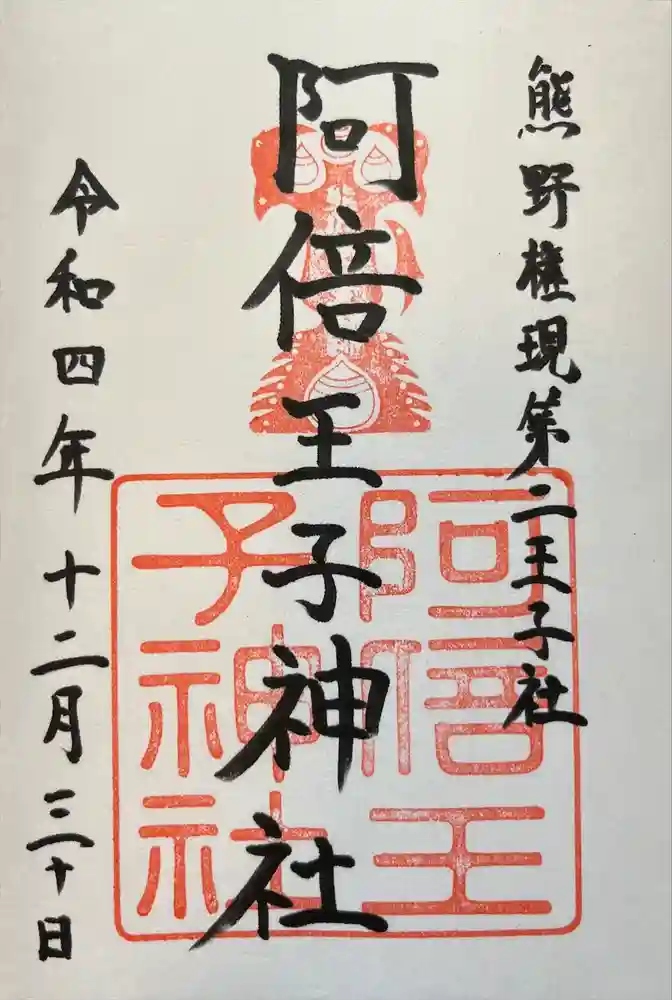 熊野権現第二王子社
阿倍王子神社
令和四年十二月三十日
阿倍王
子神社